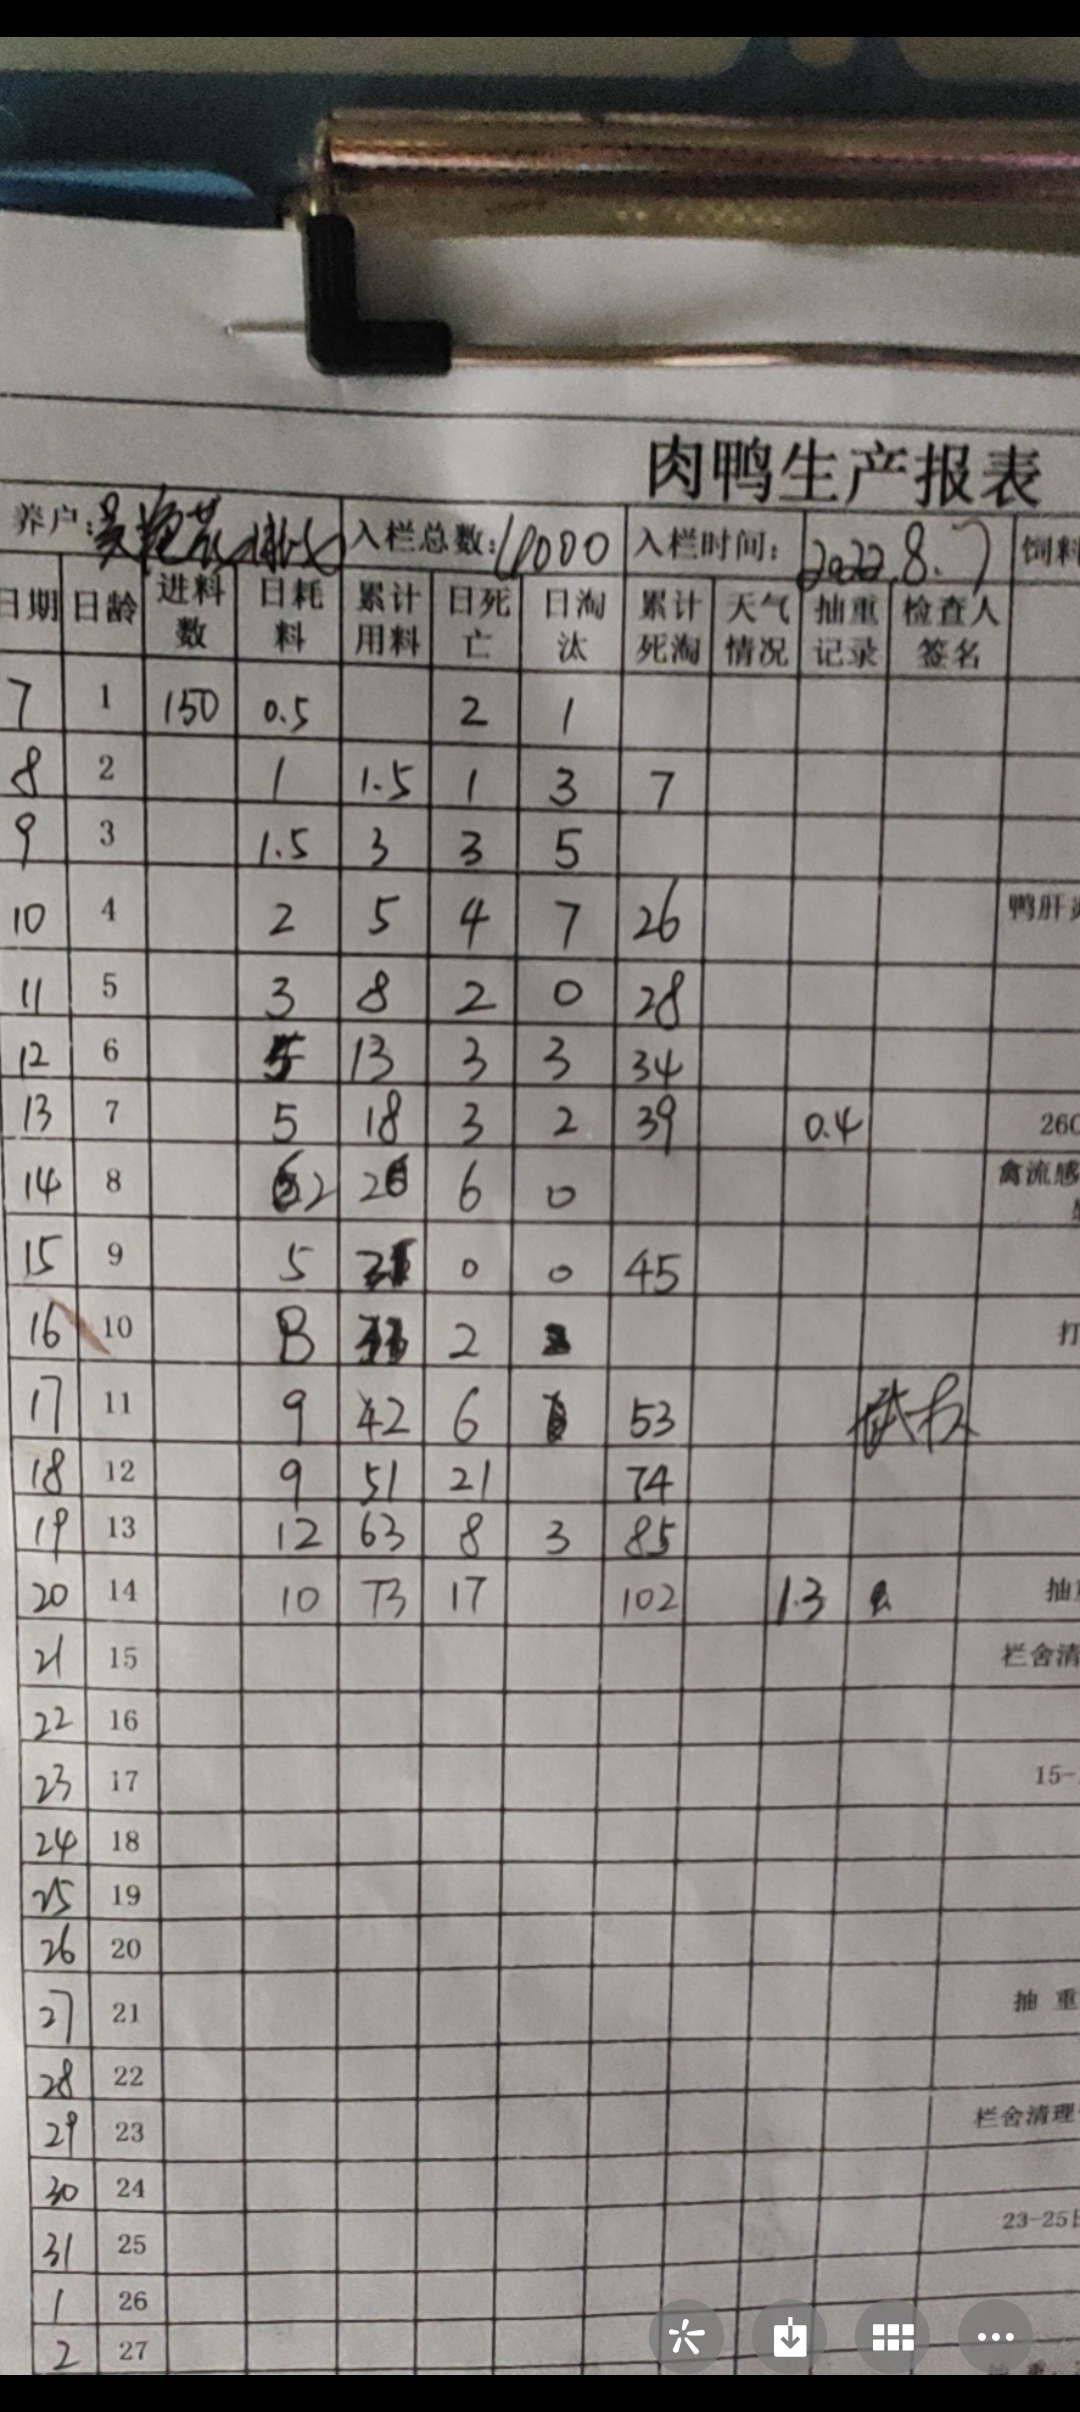 肉鸭生产报表
养户: 入栏总数:10000 入栏时间: 2022.8.7 饲料
日期 日龄 进料数 日耗料 累计用料 日死亡 日淘汰 累计死淘 天气情况 抽重记录 检查人签名
7 1 150 0.5 2 1
8 2 1 1.5 1 3 7
9 3 1.5 3 3 5
10 4 2 5 4 7 26 鸭肝
11 5 3 8 2 0 28
12 6 5 13 3 3 34
13 7 5 18 3 2 39 0.4 260
14 8 6 0 禽流感
15 9 5 0 0 45
16 10 2 打
17 11 9 42 6 53
18 12 9 51 21 74
19 13 12 63 8 3 85
20 14 10 73 17 102 1.3 抽
21 15 栏舍清
22 16
23 17 15-
24 18
25 19
26 20
27 21 抽 重
28 22
29 23 栏舍清理
30 24
31 25 23-25日
1 26
2 27